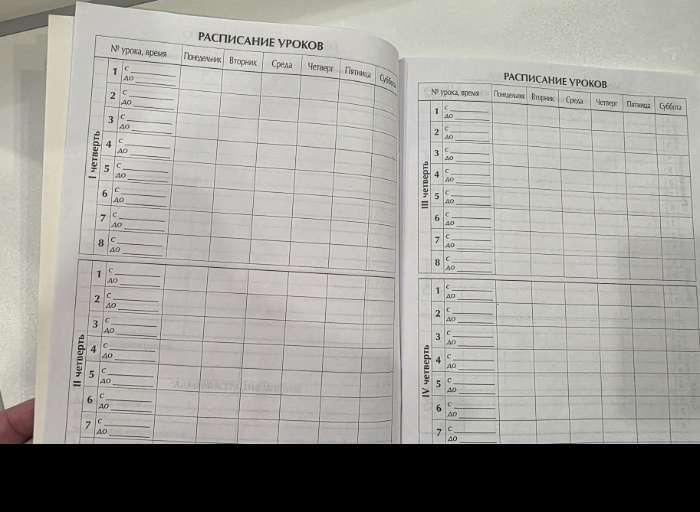 РАСПИСАНИЕ УРОКОВ
№ урока, время Понедельник Вторник Среда Четверг Пятница Суббота
I четверть
1 с
до
2 с
до
3 с
до
4 с
до
5 с
до
6 с
до
7 с
до
8 с
до
II четверть
1 с
до
2 с
до
3 с
до
4 с
до
5 с
до
6 с
до
7 с
до
РАСПИСАНИЕ УРОКОВ
№ урока, время Понедельник Вторник Среда Четверг Пятница Суббота
III четверть
1 с
до
2 с
до
3 с
до
4 с
до
5 с
до
6 с
до
7 с
до
8 с
до
IV четверть
1 с
до
2 с
до
3 с
до
4 с
до
5 с
до
6 с
до
7 с
до